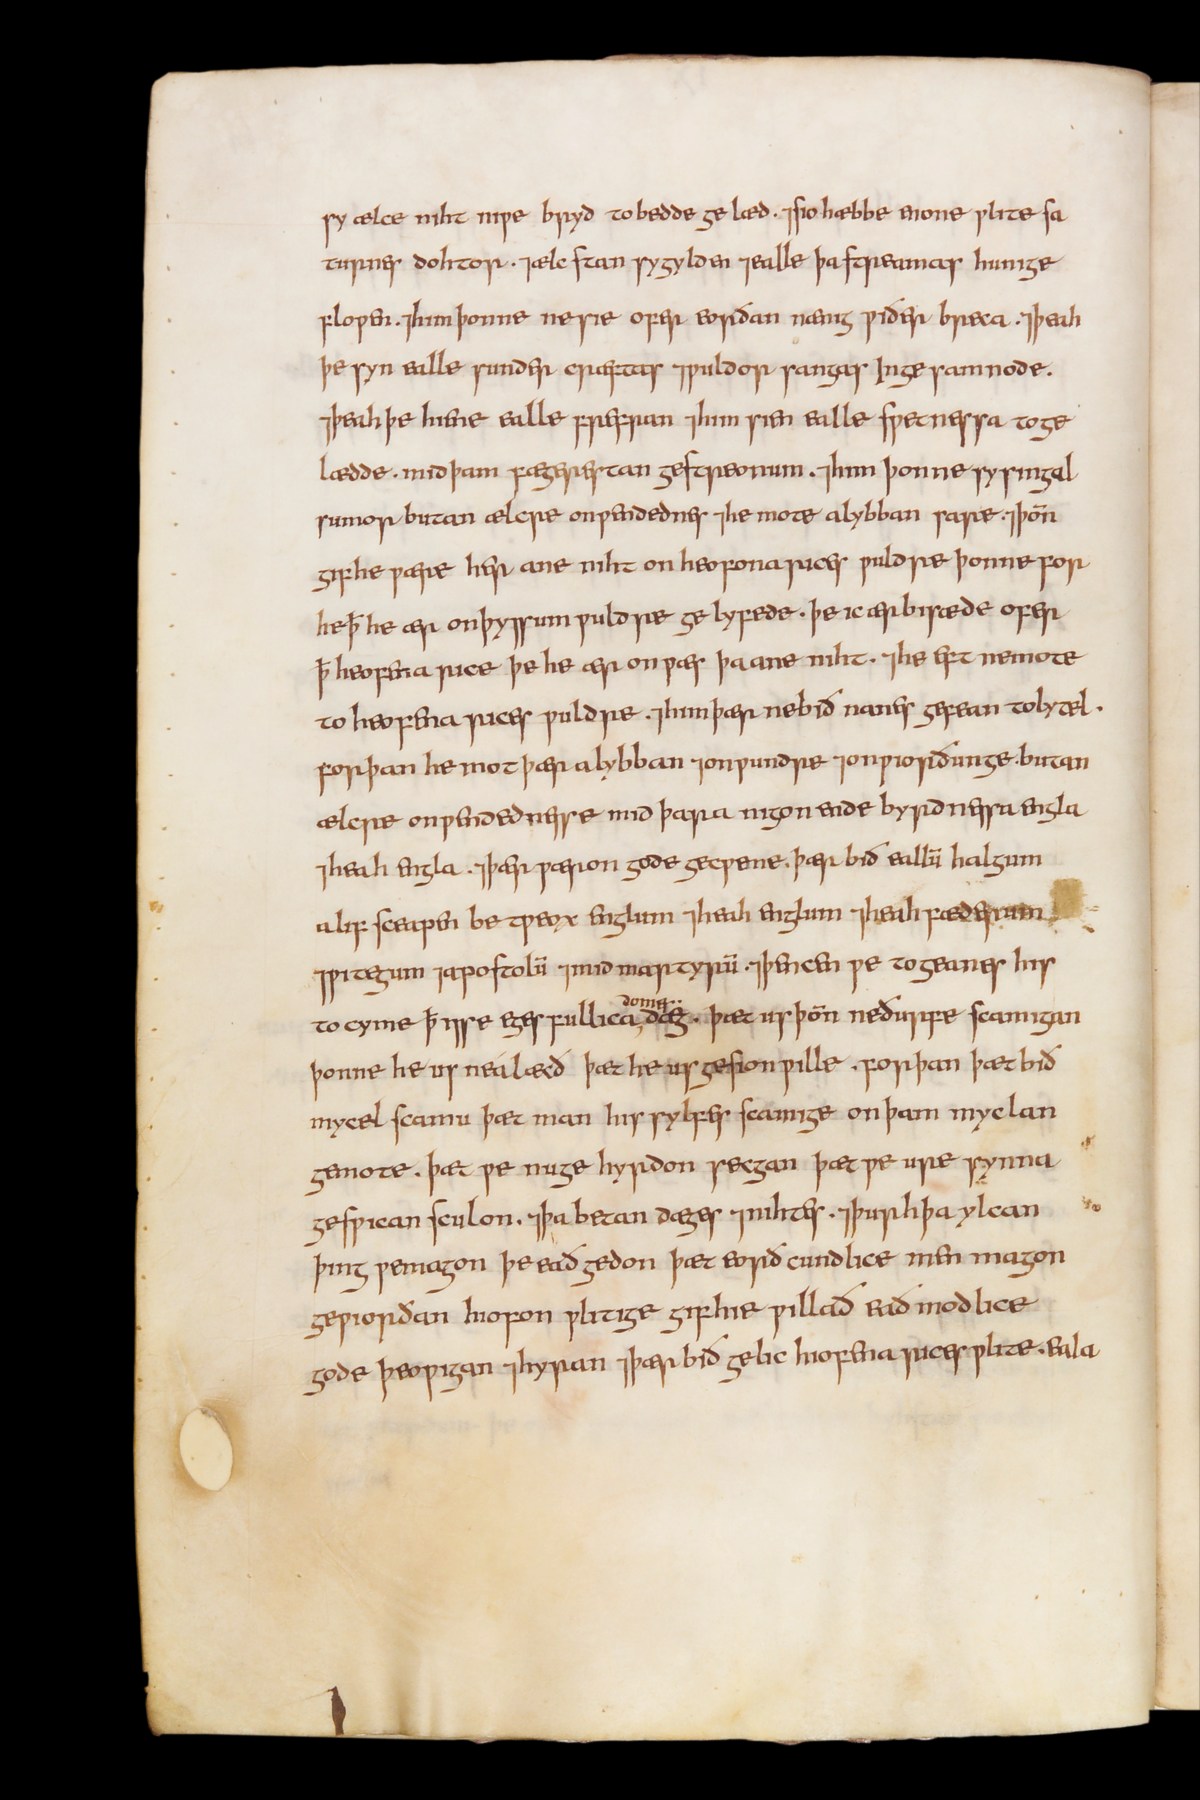 sy ælce niht niƿe bryd to bedde gelæd. ⁊ sio hæbbe enone ƿlite sa
turnes dohtor. ⁊ ælc stan sy gylden ⁊ ealle þa streamas hunige
floƿen. ⁊ him þonne ne sie ofer eorðan nænig ƿiðer breca. ⁊ þeah
þe syn ealle sunder cræftas ⁊ ƿuldor sangas In gesamnode.
⁊ þeah þe hiene ealle frefran ⁊ him sien ealle sƿetnessa to ge
lædde. mid þam fægerestan gestreonum. ⁊ him þonne sy singal
sumor butan ælcre onƿendednes ⁊ he mote alybban sare. ⁊ þon̄
gif he ƿære her ane niht on heofona rices ƿuldre þonne for
he ꝥ he ær on þyssum ƿuldre gelyfede. þe ic ær bisæde ofer
ꝥ heofena rice þe he ær on ƿæs þa ane niht. ⁊ he eft ne mote
to heofena rices ƿuldre. ⁊ him þær ne bið nanes gefean to lytel.
forþan he mot þær alybban ⁊ on ƿundre ⁊ on ƿiorðunge. butan
ælcre onƿendednesse mid þara nigon endebyrdnessa engla
⁊ heah engla. ⁊ þær ƿæron gode gecƿeme. þær bið eallū halgum
a lif sceapen betƿeox englum ⁊ heah englum ⁊ heah fæderum
⁊ ƿitegum ⁊ apostolū ⁊ mid martyrū. ⁊ þencen ƿe togeanes his
tocyme ꝥ is se egesfullica domes.. dæg. þæt us þon̄ ne ðurfe scamigan
þonne he us nealæcð þæt he us gesion ƿille. forþan þæt bið
mycel scamu þæt man his sylfes scamige on þam myclan
gemote. þæt ƿe nu gehyrdon secgan þæt ƿe ure synna
gesƿican sculon. ⁊ þa betan dæges ⁊ nihtes. ⁊ þurh þa ylcan
þing ƿe magon þe eað gedon þæt eorðcundlice men magon
geƿiorðan hiofon ƿlitige gif hie ƿillað eaðmodlice
gode þeoƿigan ⁊ hyran ⁊ þær bið gelic hiofena rices ƿlite. eala